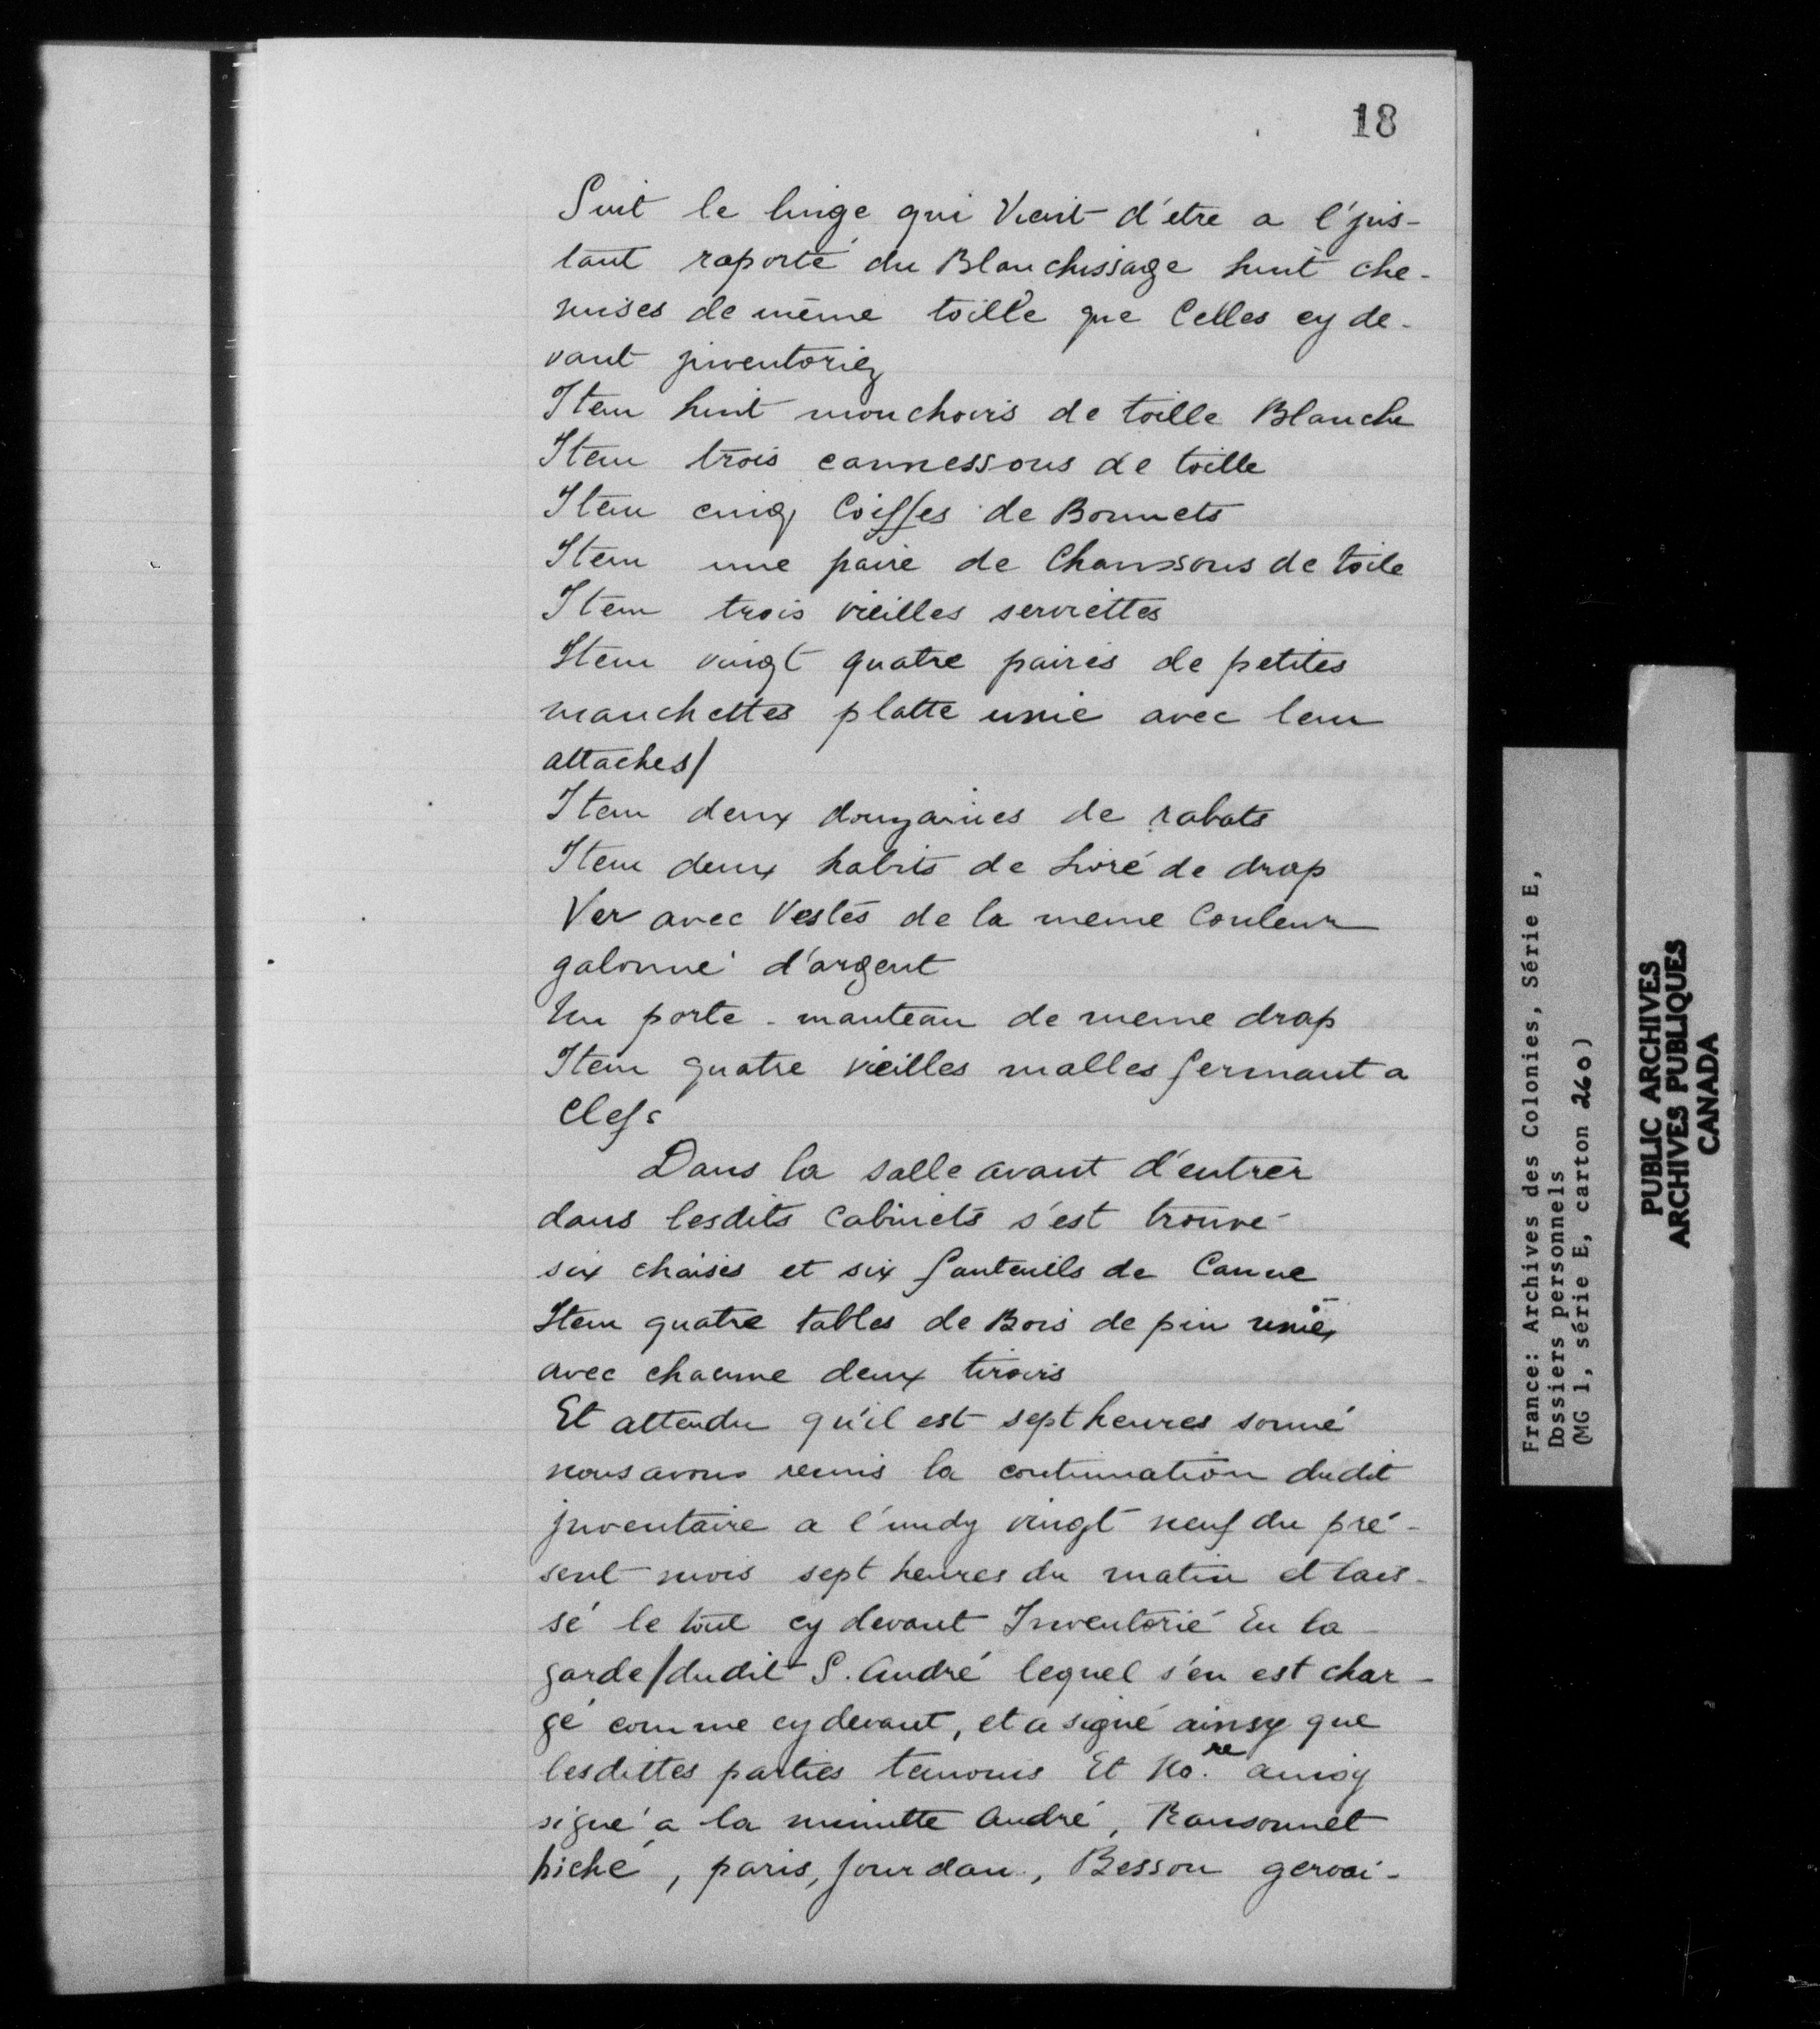 18
Suit le linge qui Vient d'etre a l'jns-
tant raporté du Blanchissage huit che-
mises de même toille que Celles cy de-
vant jnventoriez
Item huit mouchoirs de toille Blanche
Item trois cannessons de toille
Item cinq Coiffes de Bonnets
Item une paire de Chaussons de toile
Item trois vieilles serviettes
Item vingt quatre paires de petites
manchettes platte unie avec leur
attaches/
Item deux douzaines de rabats
Item deux habits de Livré de drap
Ver avec Vestes de la meme Couleur
galonné d'argent
Un porte-manteau de meme drap
Item quatre vieilles malles fermant a
Clefs
Dans la salle avant d'entrer
dans lesdits Cabinets s'est trouvé
six chaises et six fauteuils de Canne
Item quatre tables de Bois de pin unies
avec chacune deux tiroirs
Et attendu qu'il est sept heures sonné
nous avons remis la continuation dudit
jnventaire a l'undy vingt neuf du pré-
sent mois sept heures du matin et lais-
sé le tout cy devant Inventorié En la
garde/dudit S. André lequel s'en est char-
gé comme cy devant, et a signé ainsy que
lesdittes parties temoins Et No.re ainsy
signé a la minutte André, Ransonnet
piché, paris, Jourdan, Besson gervai-
France: Archives des Colonies, Série E,
Dossiers personnels
(MG 1, série E, carton 260)
PUBLIC ARCHIVES
ARCHIVES PUBLIQUES
CANADA